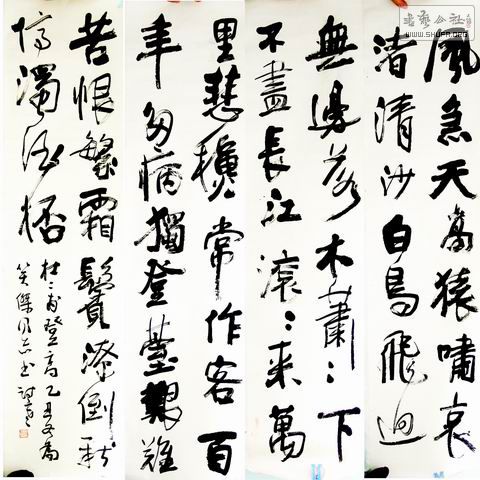 風急天高猿嘯哀
渚清沙白鳥飛迴
無邊落木蕭〻下
不盡長江滾〻来萬
里悲穐常作客百
年多病獨登臺艱難
苦恨繁霜鬢潦倒新
停濁酒桮
杜甫登高乙丑冬為
笑傑同志书
书艺公社
WWW.SHUFA.ORG